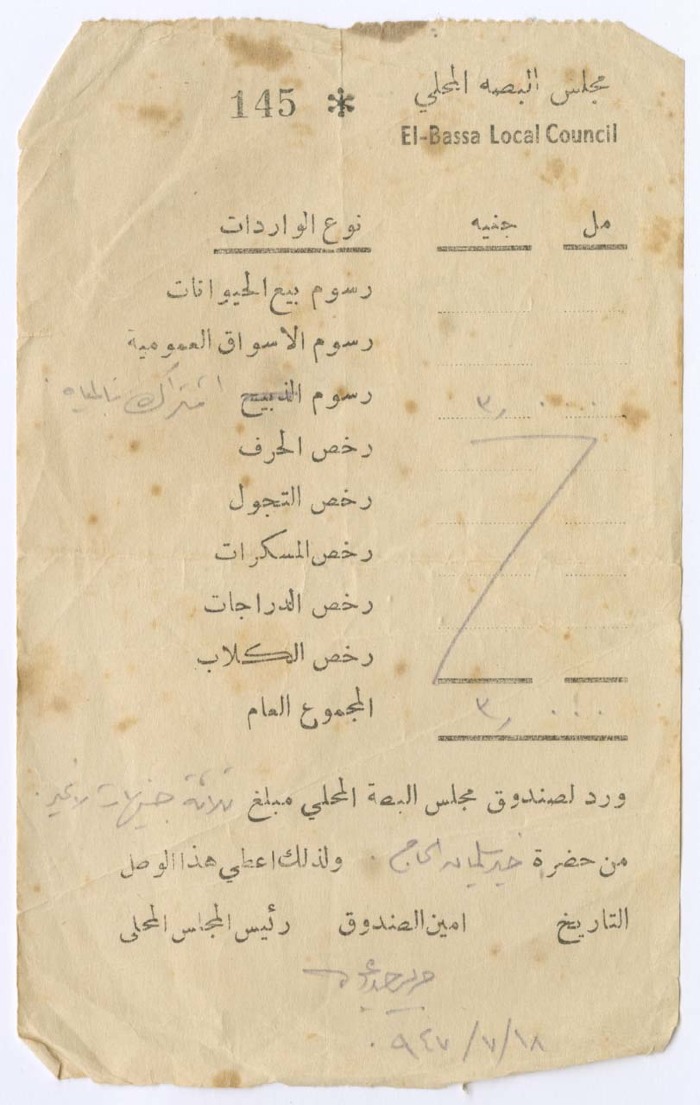 مجلس البصه المحلي
El-Bassa Local Council
145 *
مل جنيه نوع الواردات
رسوم بيع الحيوانات
رسوم الاسواق العمومية
رسوم الذبيح اشتراك بالمياه ٣,٠٠٠
رخص الحرف
رخص التجول
رخص المسكرات
رخص الدراجات
رخص الكلاب
المجموع العام ٣,٠٠٠
ورد لصندوق مجلس البصة المحلي مبلغ ثلاثة جنيهات لا غير
من حضرة خير سليمان الحاج ولذلك اعطي هذا الوصل
التاريخ امين الصندوق رئيس المجلس المحلي
٩٤٧/٧/١٨